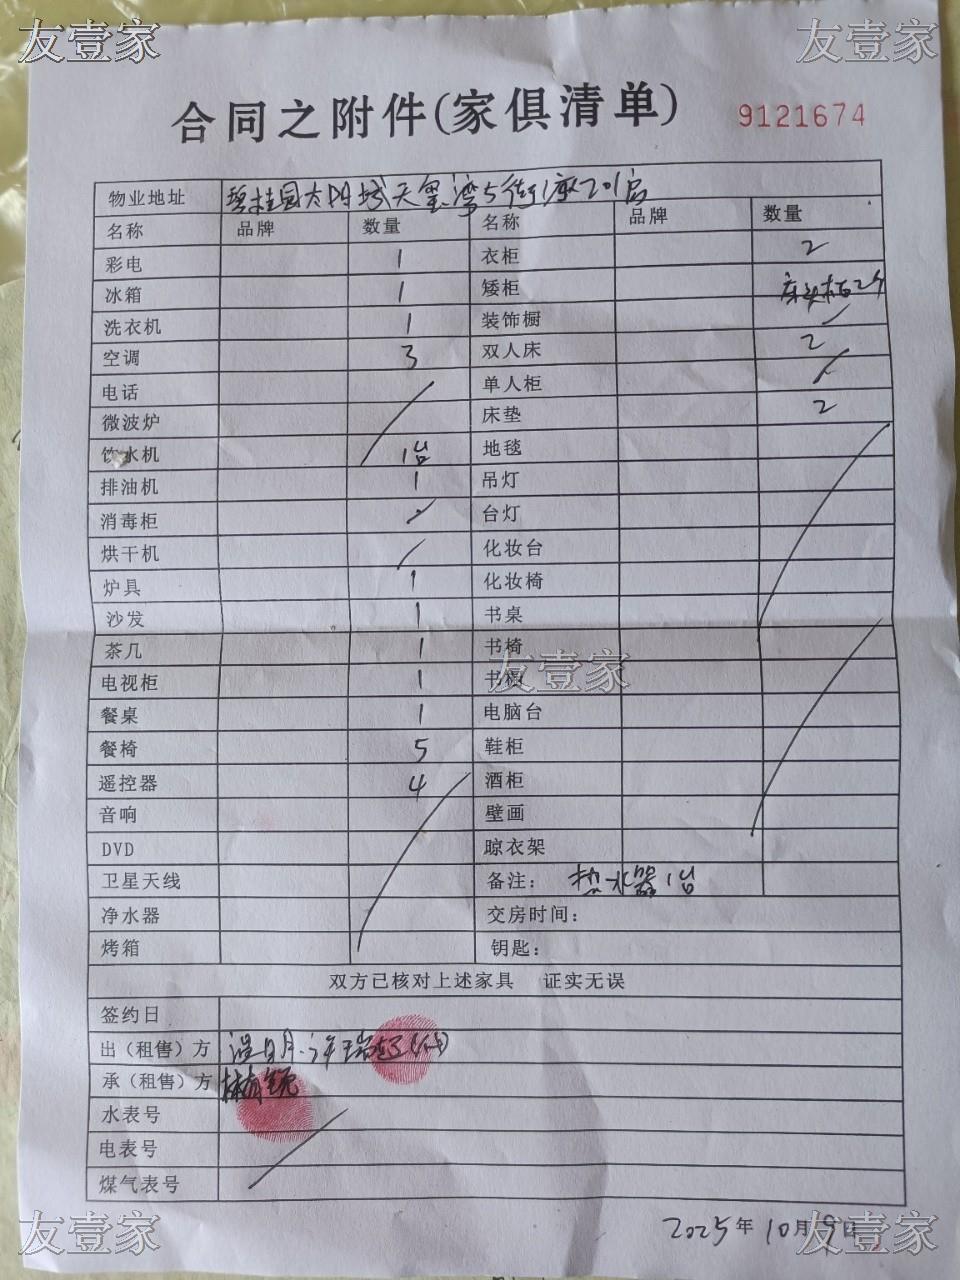 友壹家 友壹家
合同之附件(家俱清单) 9121674
物业地址 碧桂园太阳城天玺湾5街1座201房
名称 品牌 数量 名称 品牌 数量
彩电 1 衣柜 2
冰箱 1 矮柜 床头柜2个
洗衣机 1 装饰橱
空调 3 双人床 2
电话 单人柜
微波炉 床垫 2
饮水机 1台 地毯
排油机 1 吊灯
消毒柜 台灯
烘干机 化妆台
炉具 1 化妆椅
沙发 1 书桌
茶几 1 书椅
友壹家
电视柜 1
餐桌 1 电脑台
餐椅 5 鞋柜
遥控器 4 酒柜
音响 壁画
DVD 晾衣架
卫星天线 备注： 热水器1台
净水器 交房时间：
烤箱 钥匙：
双方已核对上述家具 证实无误
签约日
出（租售）方
承（租售）方
水表号
电表号
煤气表号
2025年10月9日
友壹家 友壹家